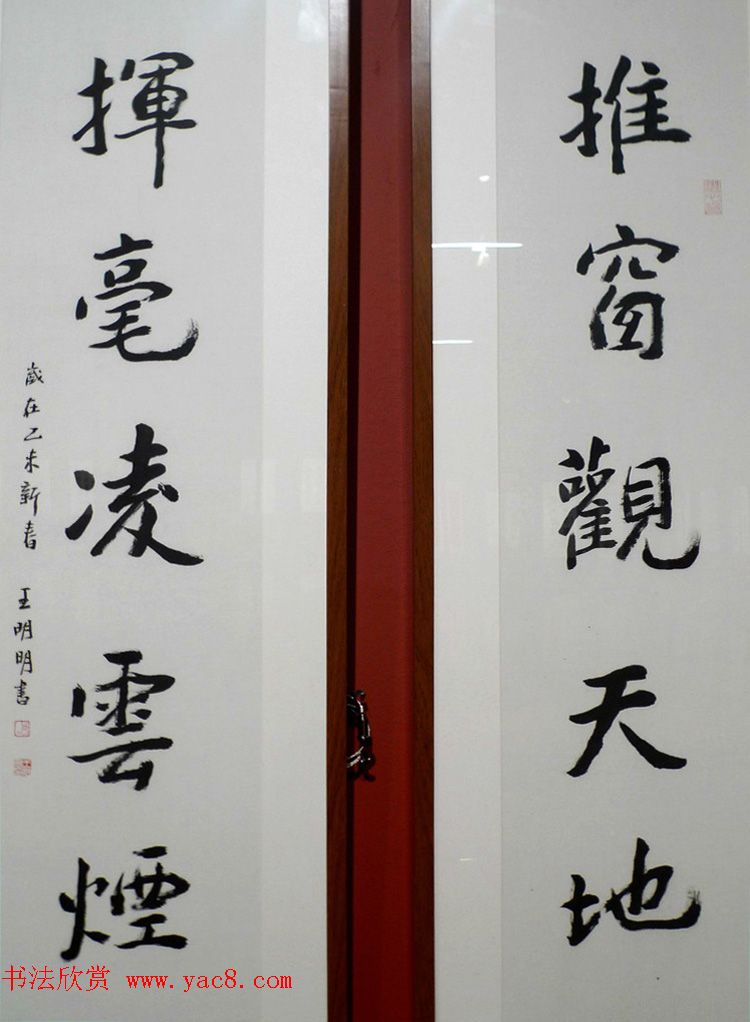 推窗觀天地
揮毫凌雲煙
歲在乙未新春 王明明書
书法欣赏 www.yac8.com